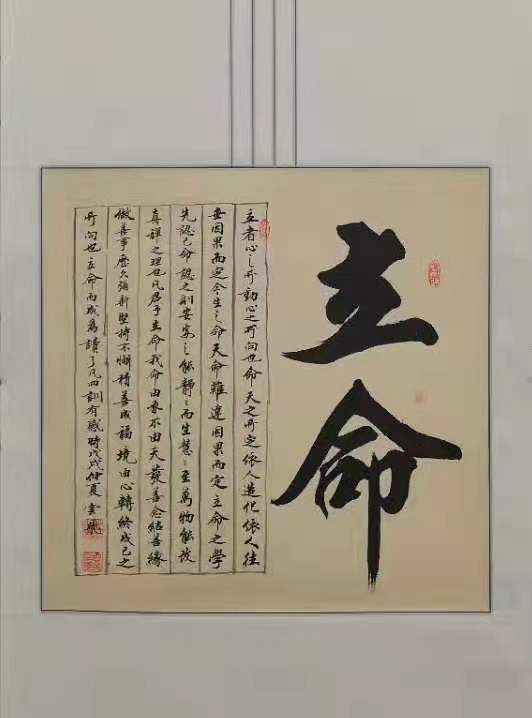 立命
立者心之所動心之所向也命天之所定依人造化依人往
世因果而定今生之命天命難違因果而定立命之學
先認己命認之則安安之能靜〻而生慧〻至萬物能
真諦之理也凡君子立命我命由我不由天發善念結善緣
做善事歷久彌新堅持不懈積善成福境由心轉終成己之
所向也立命而成焉讀了凡四訓有感時戊戌仲夏雲